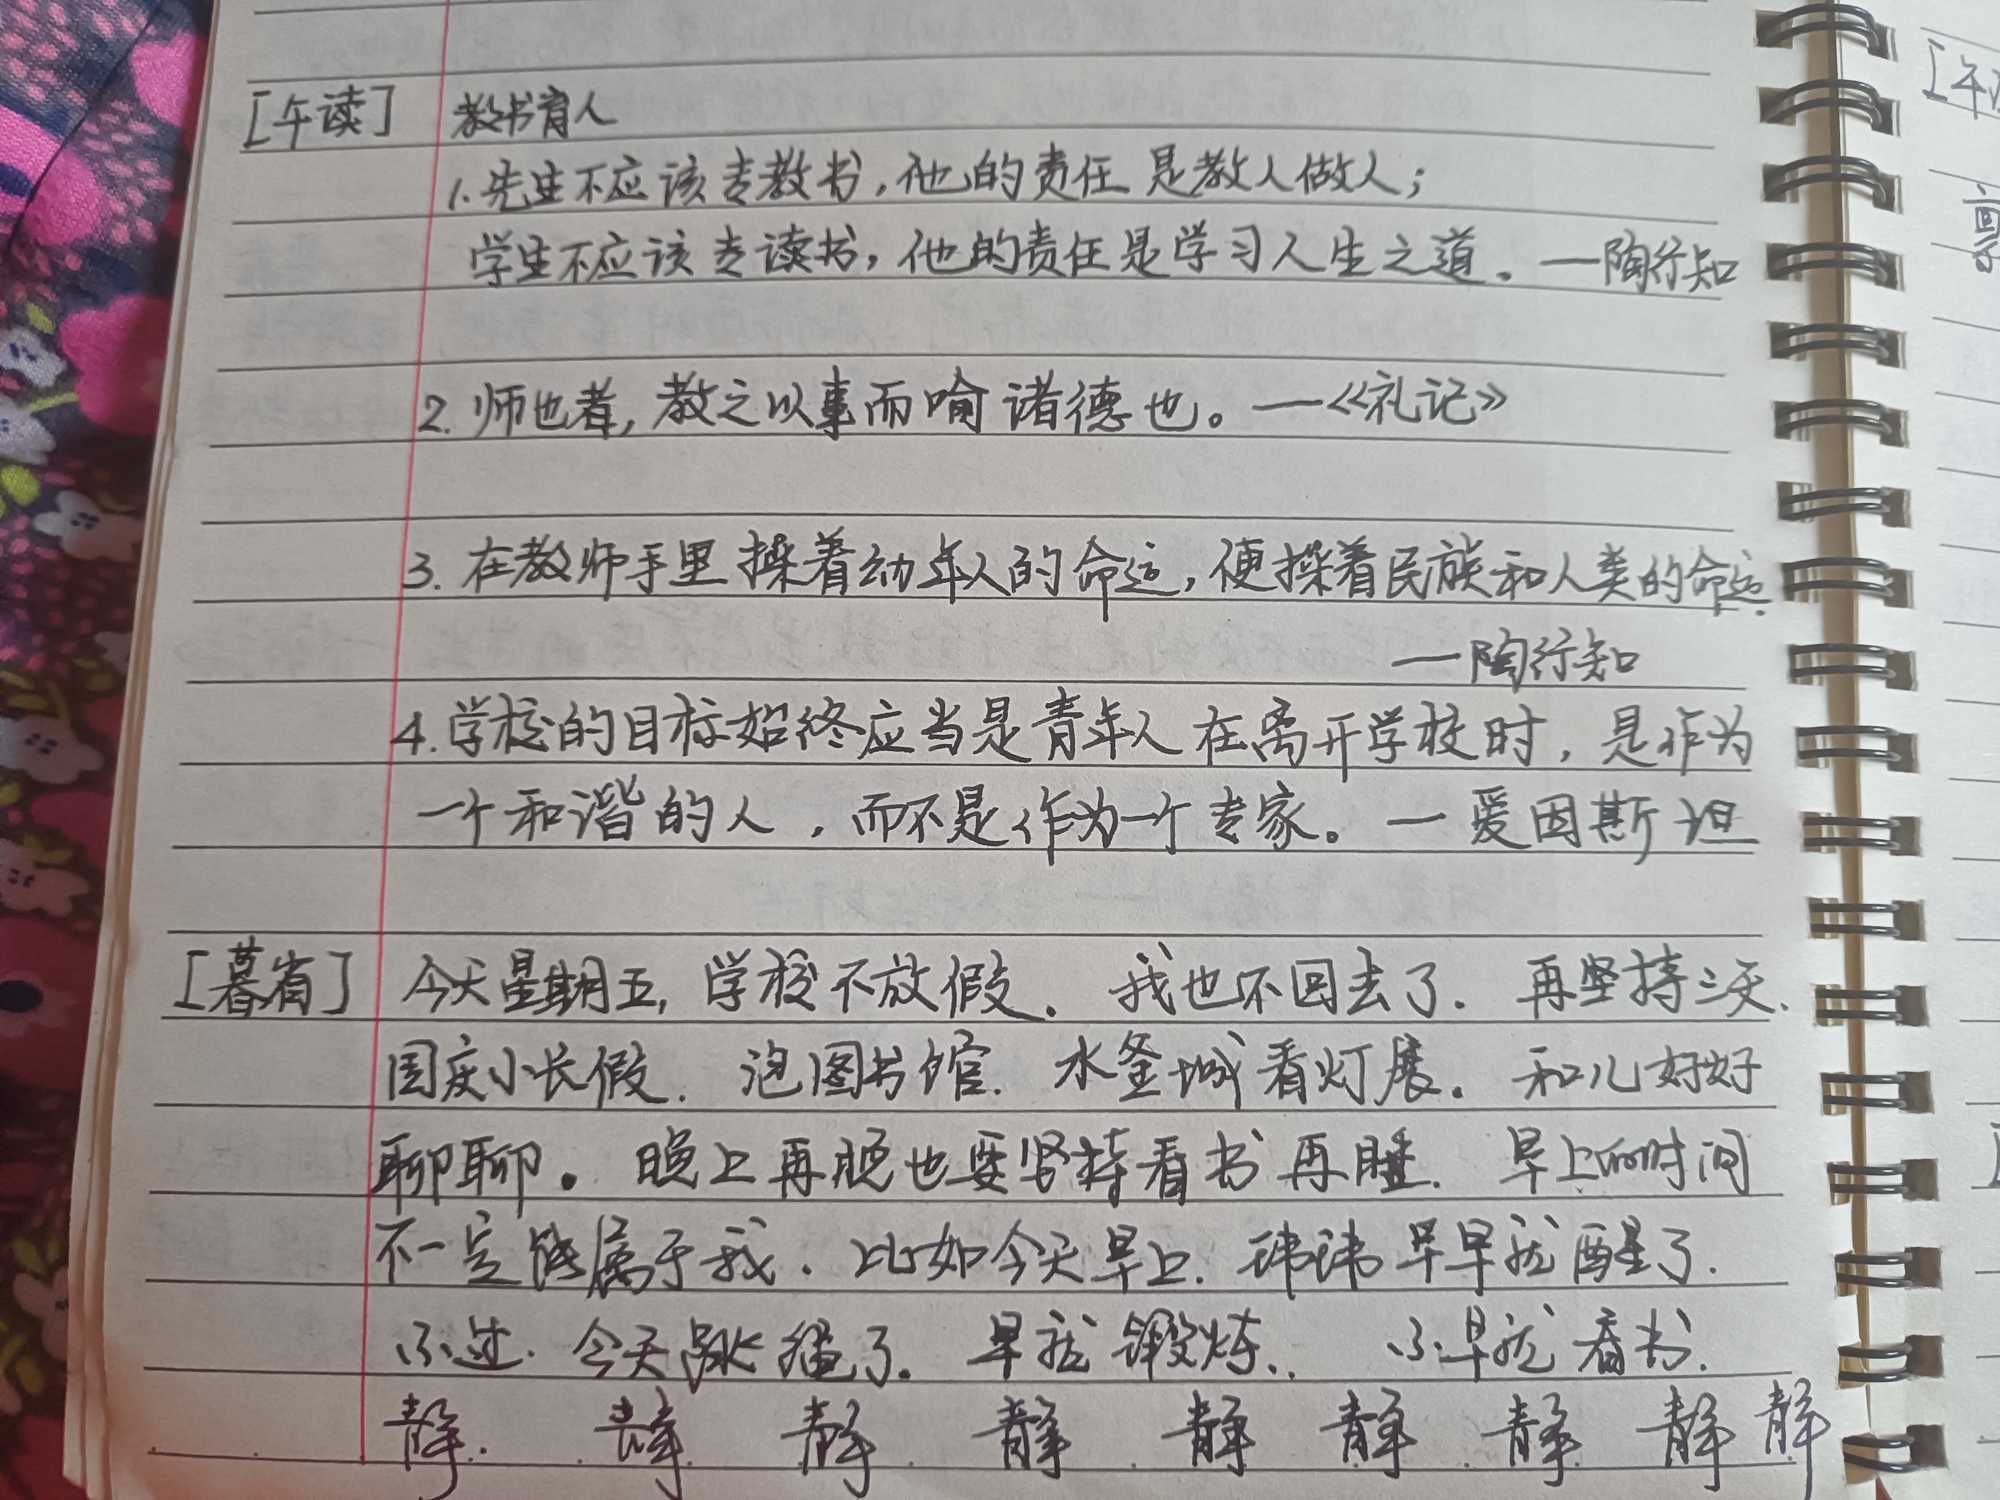 [午读] 教书育人
1.先生不应该专教书,他的责任是教人做人;
学生不应该专读书,他的责任是学习人生之道。——陶行知
2.师也者,教之以事而喻诸德也。——《礼记》
3.在教师手里操着幼年人的命运,便操着民族和人类的命运.
——陶行知
4.学校的目标始终应当是青年人在离开学校时,是作为
一个和谐的人,而不是作为一个专家。—爱因斯坦
[暮省] 今天星期五,学校不放假. 我也不回去了. 再坚持三天.
国庆小长假. 泡图书馆. 水釜城看灯展. 和儿好好
聊聊。 晚上再晚也要坚持看书再睡. 早上的时间
不一定能属于我. 比如今天早上. 玮玮早早就醒了.
不过. 今天跳绳了. 早就锻炼. 不早就看书.
静. 静 静 静 静 静 静 静 静
[午